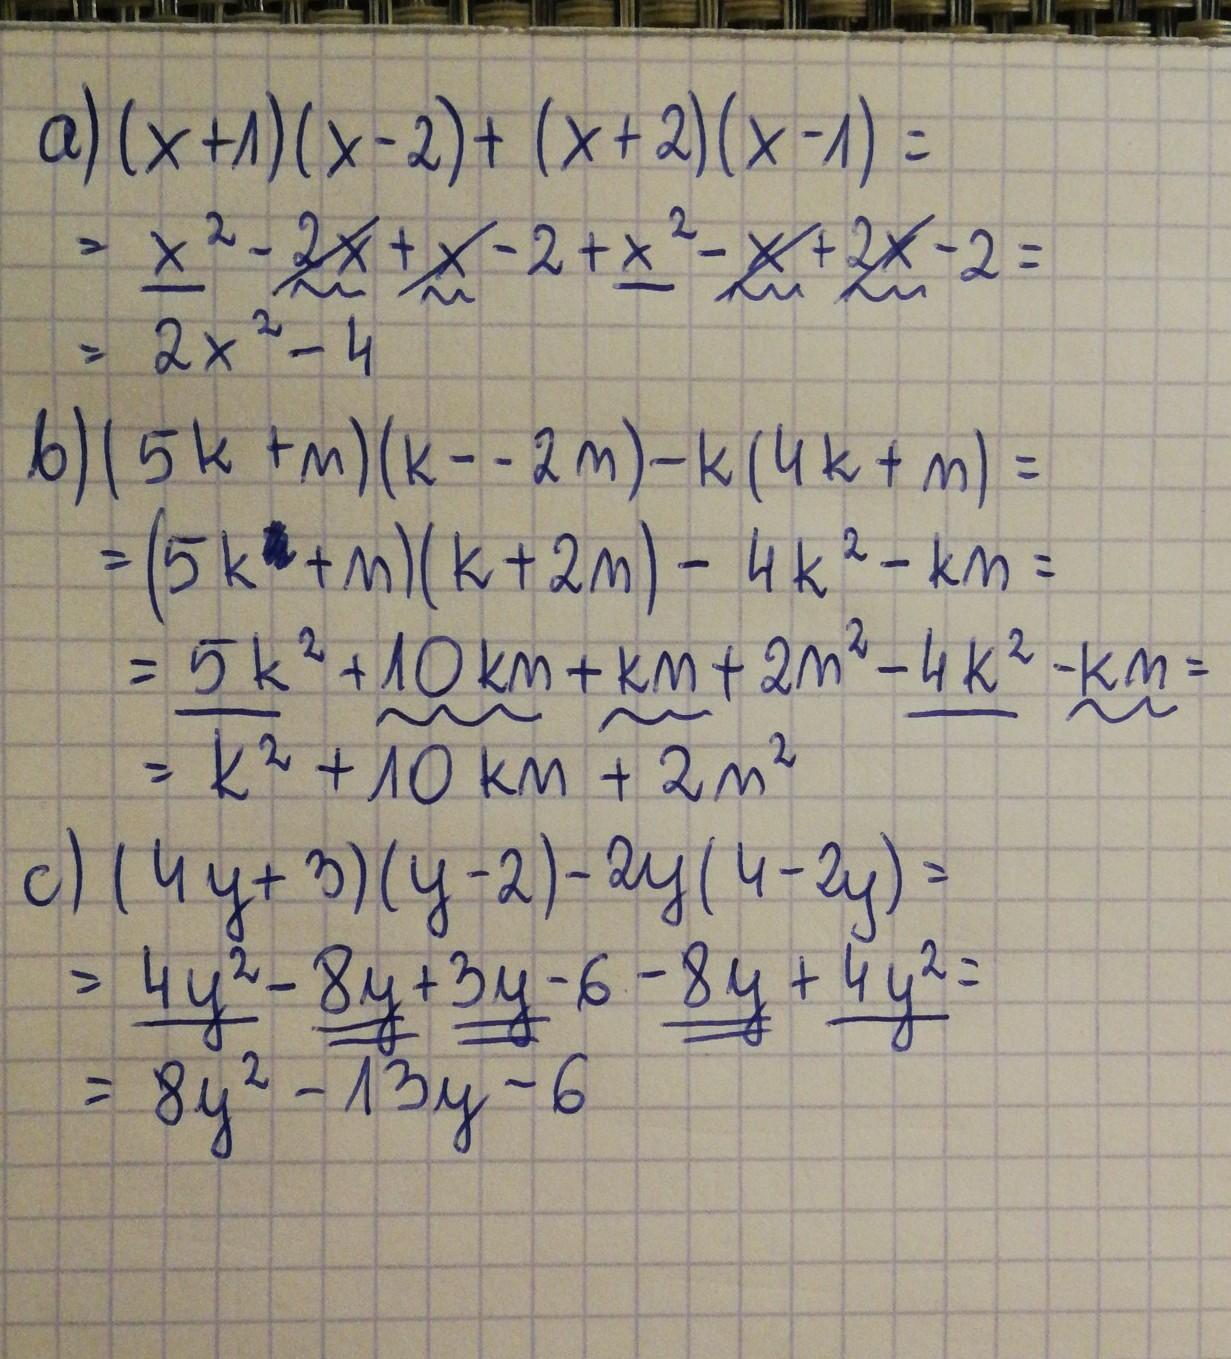 a) (x+1)(x-2)+(x+2)(x-1)=
= x² - 2x + x - 2 + x² - x + 2x - 2 =
= 2x² - 4
b) (5k+n)(k--2n)-k(4k+n)=
= (5k+n)(k+2n) - 4k² - kn =
= 5k² + 10kn + kn + 2n² - 4k² - kn =
= k² + 10kn + 2n²
c) (4y+3)(y-2)-2y(4-2y)=
= 4y² - 8y + 3y - 6 - 8y + 4y² =
= 8y² - 13y - 6